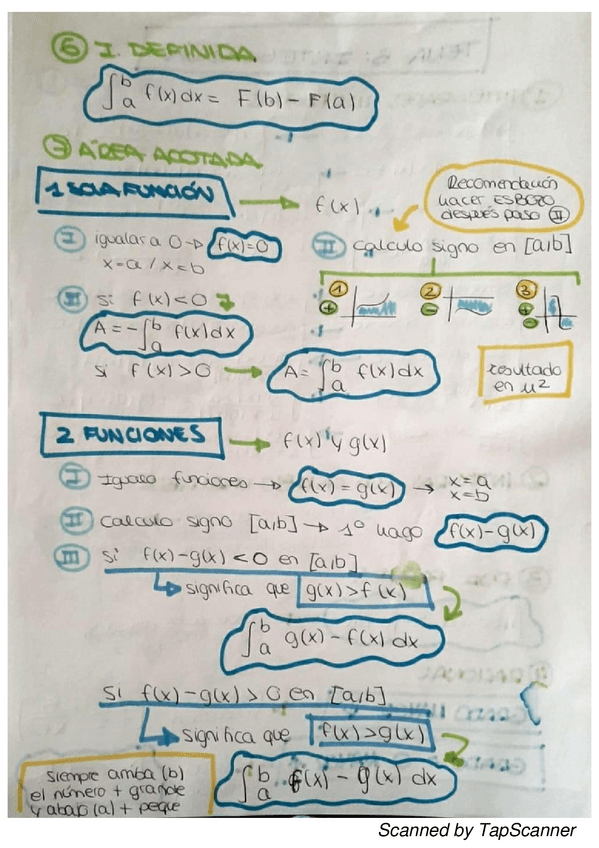 ⑥ I. DEFINIDA
∫ₐᵇ f(x) dx = F(b) - F(a)
③ ÁREA ACOTADA
1 SOLA FUNCIÓN → f(x)
Recomendación
hacer ESBOZO
después paso Ⅱ
Ⅰ igualar a 0 → f(x)=0
x=a / x=b
Ⅱ calculo signo en [a,b]
① ② ③
+ - + -
Ⅲ si f(x)<0
A = -∫ₐᵇ f(x) dx
si f(x)>0 → A = ∫ₐᵇ f(x) dx
resultado
en u²
2 FUNCIONES → f(x) y g(x)
Ⅰ Igualo funciones → f(x) = g(x) → x=a
x=b
Ⅱ calculo signo [a,b] → 1º hago f(x)-g(x)
Ⅲ si f(x)-g(x) < 0 en [a,b]
significa que g(x)>f(x)
∫ₐᵇ g(x) - f(x) dx
si f(x)-g(x) > 0 en [a,b]
significa que f(x)>g(x)
∫ₐᵇ f(x) - g(x) dx
siempre arriba (b)
el número + grande
y abajo (a) + peque
Scanned by TapScanner